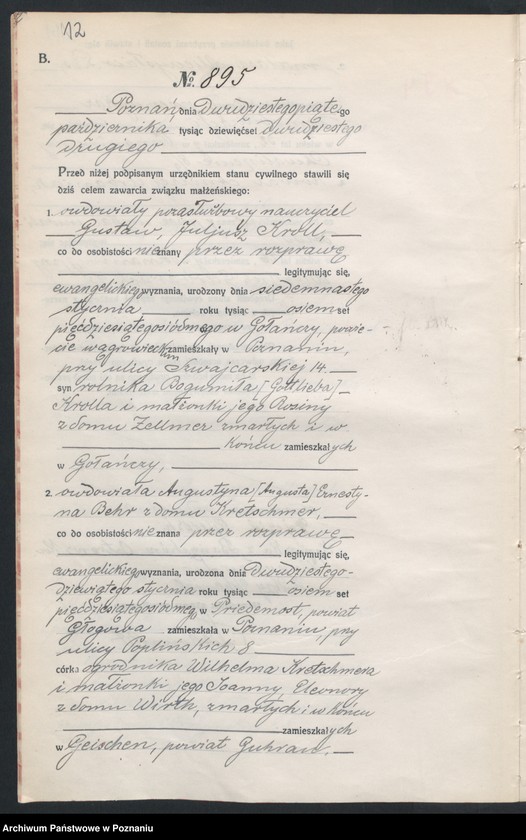 12
B.
№ 895
Poznań dnia dwudziestegopiątego
października tysiąc dziewięćset dwudziestego
drugiego
Przed niżej podpisanym urzędnikiem stanu cywilnego stawili się
dziś celem zawarcia związku małżeńskiego:
1. owdowiały pozasłużbowy nauczyciel
Gustaw, Juljusz Kroll,
co do osobistości nieznany przez rozprawę
legitymując się,
ewangelickiego wyznania, urodzony dnia siedemnastego
stycznia roku tysiąc osiem set
pięćdziesiątegosiódmego w Gołańczy, powie-
cie wągrowieckim zamieszkały w Poznaniu,
przy ulicy Szwajcarskiej 14.
syn rolnika Bogumiła [Gottlieba]
Krolla i małżonki jego Rosiny
z domu Zellmer zmarłych i w
końcu zamieszkałych
w Gołańczy,
2. owdowiała Augustyna [Augusta] Ernesty-
na Behr z domu Kretschmer,
co do osobistości nieznana przez rozprawę
legitymując się,
ewangelickiego wyznania, urodzona dnia dwudziestego-
dziewiątego stycznia roku tysiąc osiem set
pięćdziesiątegosiódmego, w Priedemost, powiat
Głogowa zamieszkała w Poznaniu, przy
ulicy Poplińskich 8
córka ogrodnika Wilhelma Kretschmera
i małżonki jego Joanny, Eleonory
z domu Wirth, zmarłych i w końcu
zamieszkałych
w Geischen, powiat Guhrau.
Archiwum Państwowe w Poznaniu